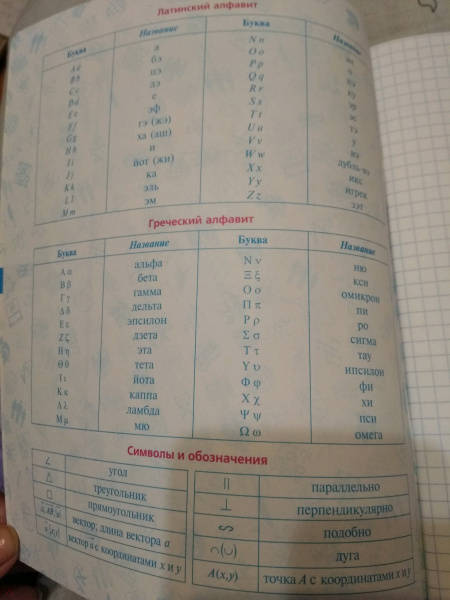 Латинский алфавит
Буква Название Буква Название
A a а N n эн
B b бэ O o о
C c цэ P p пэ
D d дэ Q q ку
E e е R r эр
F f эф S s эс
G g гэ (жэ) T t тэ
H h ха (аш) U u у
I i и V v вэ
J j йот (жи) W w дубль-вэ
K k ка X x икс
L l эль Y y игрек
M m эм Z z зэт
Греческий алфавит
Буква Название Буква Название
Α α альфа Ν ν ню
Β β бета Ξ ξ кси
Γ γ гамма Ο ο омикрон
Δ δ дельта Π π пи
Ε ε эпсилон Ρ ρ ро
Ζ ζ дзета Σ σ сигма
Η η эта Τ τ тау
Θ θ тета Υ υ ипсилон
Ι ι йота Φ φ фи
Κ κ каппа Χ χ хи
Λ λ ламбда Ψ ψ пси
Μ μ мю Ω ω омега
Символы и обозначения
∠ угол || параллельно
△ треугольник ⊥ перпендикулярно
□ прямоугольник ∽ подобно
вектор; длина вектора a ◠(◡) дуга
вектор a с координатами x и y A(x,y) точка A с координатами x и y